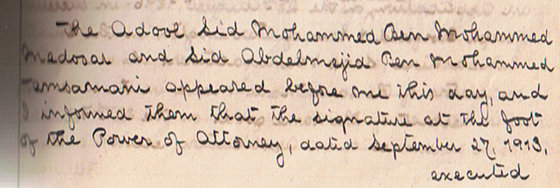 The Adool Sid Mohammed Ben Mohammed
Medosai and Sid Abdelmejid Ben Mohammed
Temsamani appeared before me this day, and
I informed them that the signature at the foot
of the Power of Attorney, dated September 27, 1913,
executed